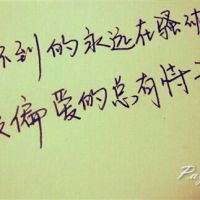 不到的永远在骚动
被偏爱的总有恃无
Pa